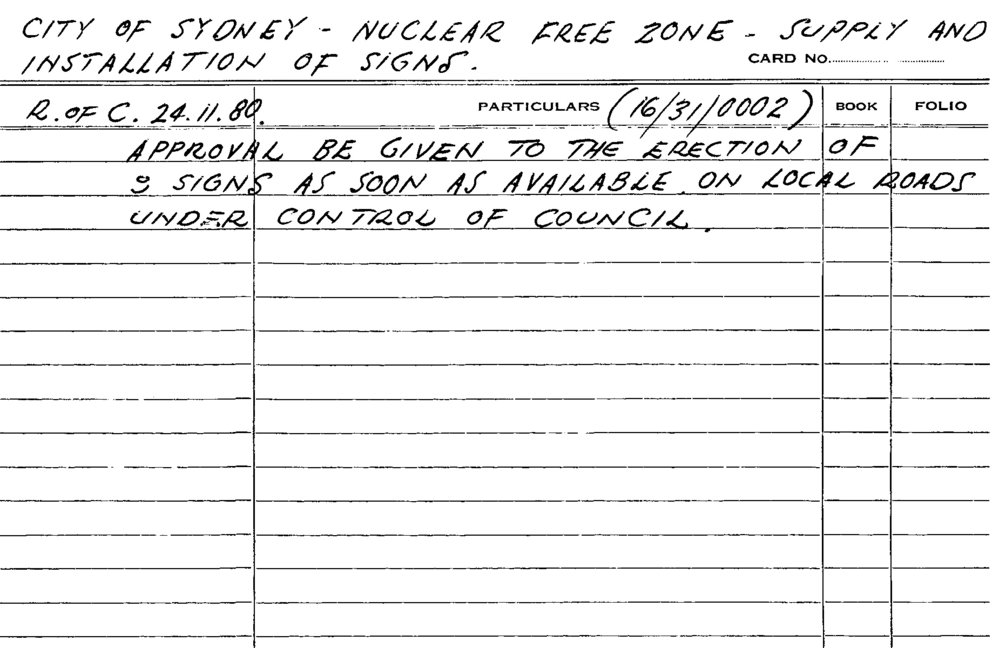 CITY OF SYDNEY - NUCLEAR FREE ZONE - SUPPLY AND
INSTALLATION OF SIGNS.
CARD NO.
R. OF C. 24.11.80. PARTICULARS (16/31/0002) BOOK FOLIO
APPROVAL BE GIVEN TO THE ERECTION OF
9 SIGNS AS SOON AS AVAILABLE ON LOCAL ROADS
UNDER CONTROL OF COUNCIL.